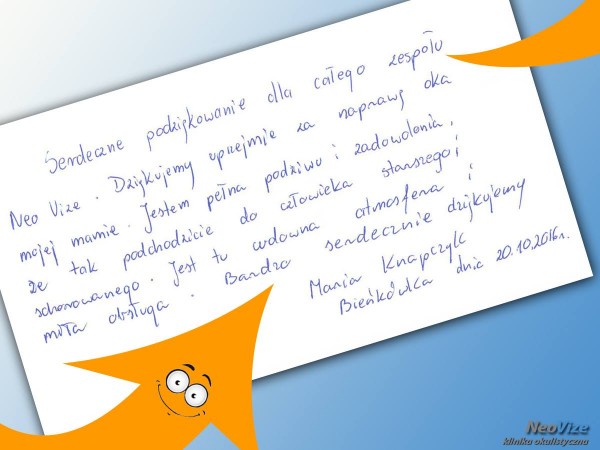 Serdeczne podziękowanie dla całego zespołu
Neo Vize. Dziękujemy uprzejmie za naprawę oka
mojej mamie. Jestem pełna podziwu i zadowolenia,
że tak podchodzicie do człowieka starszego i
schorowanego. Jest tu cudowna atmosfera i
miła obsługa. Bardzo serdecznie dziękujemy
Maria Knapczyk
Bieńkówka dnia 20.10.2016r.
NeoVize
klinika okulistyczna